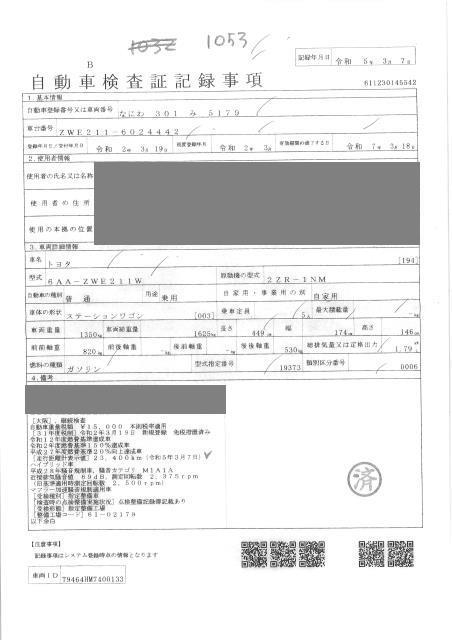 1032 1053
B
記録年月日 令和 5年 3月 7日
自動車検査証記録事項
611230145542
1. 基本情報
自動車登録番号又は車両番号 なにわ 301 み 5179
車台番号 ZWE211-6024442
登録年月日/交付年月日 令和 2年 3月 19日 初度登録年月 令和 2年 3月 有効期間の満了する日 令和 7年 3月 18日
2. 使用者情報
使用者の氏名又は名称
使用者の住所
使用の本拠の位置
3. 車両詳細情報
車名 トヨタ [194]
型式 6AA-ZWE211W 原動機の型式 2ZR-1NM
自動車の種別 普通 用途 乗用 自家用・事業用の別 自家用
車体の形状 ステーションワゴン [003] 乗車定員 5人 最大積載量 - kg
車両重量 1350kg 車両総重量 1625kg 長さ 449cm 幅 174cm 高さ 146cm
前前軸重 820kg 前後軸重 - kg 後前軸重 - kg 後後軸重 530kg 総排気量又は定格出力 1.79
燃料の種類 ガソリン 型式指定番号 19373 類別区分番号 0006
4. 備考
[大阪], 継続検査
自動車重量税額 ¥15,000 本則税率適用
[31年度税制] 令和2年3月19日 新規登録 免税措置済み
令和12年度燃費基準達成車
令和2年度燃費基準150%達成車
平成27年度燃費基準20%向上達成車
[走行距離計表示値] 23,400km (令和5年3月7日)
ハイブリッド車
平成28年騒音規制車, 騒音カテゴリ M1A1A
近接排気騒音値 69dB, 測定回転数 2,375rpm
(旧基準適用時測定回転数 2,500rpm)
マフラー加速騒音規制適用車
[受検種別] 指定整備車
[検査時の点検整備実施状況] 点検整備記録簿記載あり
[受検形態] 指定整備工場
[整備工場コード] 61-02179
以下余白
済
【注意事項】
記録事項はシステム登録時点の情報となります
車両ID 79464HM7400133